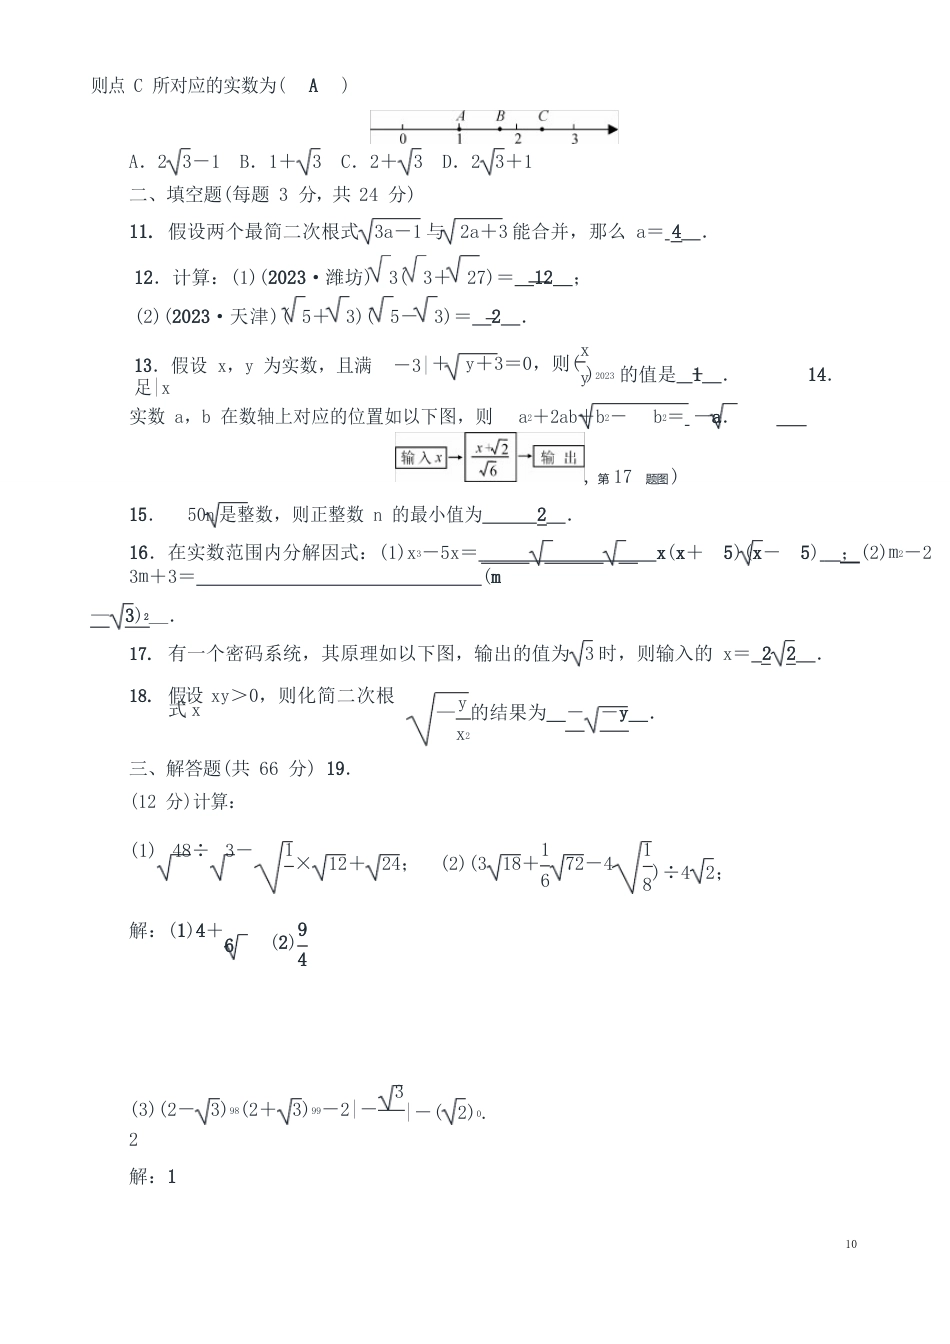 则点 C 所对应的实数为( A )
A B C
0 1 2 3
A．2√3－1 B．1＋√3 C．2＋√3 D．2√3＋1
二、填空题(每题 3 分，共 24 分)
11． 假设两个最简二次根式√3a－1与√2a＋3能合并，那么 a＝ 4 ．
12．计算：(1)(2023·潍坊)√3(√3＋√27)＝ 12 ；
(2)(2023·天津)(√5＋√3)(√5－√3)＝ 2 ．
13．假设 x，y 为实数，且满足|x－3|＋√y＋3＝0，则(x/y)2023 的值是 －1 ． 14．
实数 a，b 在数轴上对应的位置如以下图，则 √a2＋2ab＋b2－√b2＝ －a ．
输入x → x+√2/√6 → 输 出 ，第 17 题图)
15． √50n是整数，则正整数 n 的最小值为 2 ．
16．在实数范围内分解因式：(1)x3－5x＝ x(x＋√5)(x－√5) ；(2)m2－2
3m＋3＝ (m
－√3)2 ．
17． 有一个密码系统，其原理如以下图，输出的值为√3时，则输入的 x＝ 2√2 ．
18． 假设 xy＞0，则化简二次根式 x√－y/x2的结果为 －√－y ．
三、解答题(共 66 分) 19．
(12 分)计算：
(1)√48÷√3－√1×√12＋√24； (2)(3√18＋1/6√72－4√1/8)÷4√2；
解：(1)4＋√6 (2)9/4
(3)(2－√3)98(2＋√3)99－2|－√3|－(√2)0.
2
解：1
10